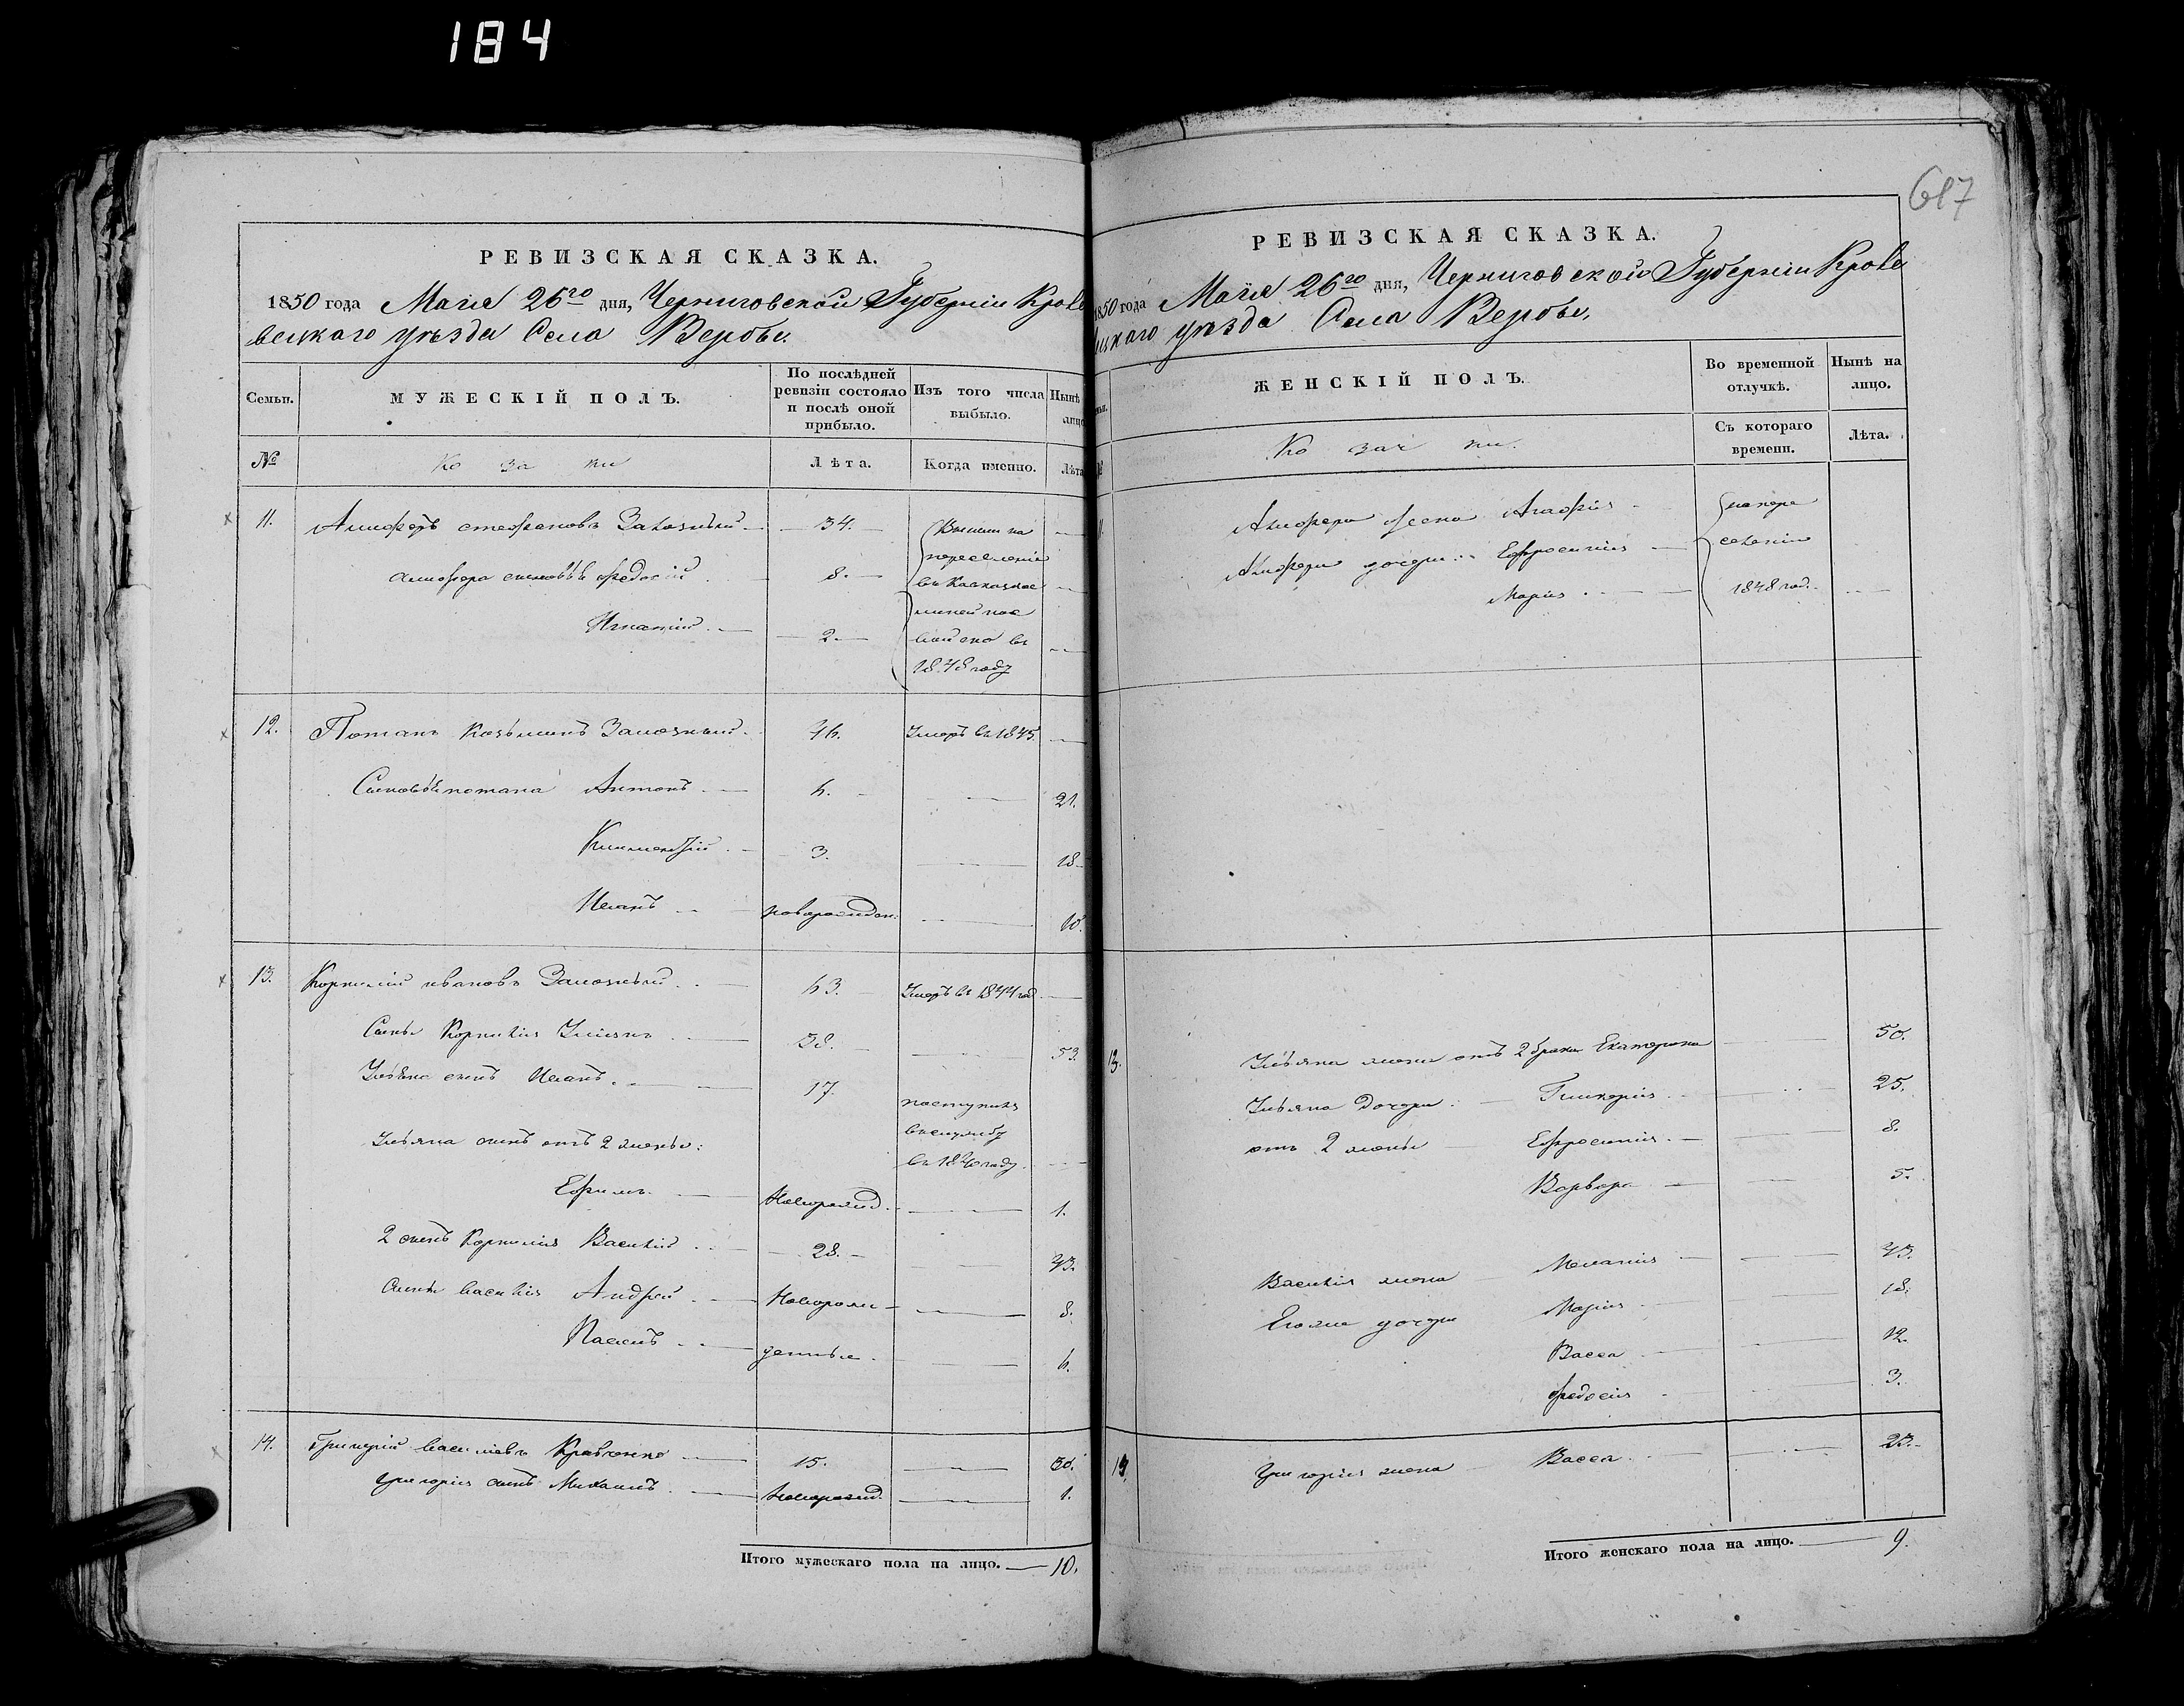 184
РЕВИЗСКАЯ СКАЗКА.
1850 года Маія 26го дня, Черниговской Губерніи Кроле
вецкаго уѣзда Села Вербы.
Семьи.
МУЖЕСКІЙ ПОЛЪ.
По послѣдней
ревизіи состояло
и послѣ оной
прибыло.
Изъ того числа
выбыло.
Нынѣ
лицо
№
Ко за ки
Лѣта.
Когда именно.
Лѣта
11. стефановъ 34.
сыновья федосій 8.
Игнатій 2.
Вышли на
переселеніе
въ Кавказкое
линейное
войско въ
1848 году
12. Потапъ Козьминъ 46. Умеръ въ 1845.
Сыновья потапа Антонъ 6. 21.
Климентій 3. 18
Иванъ новорожден. 10.
13. Корнилій ивановъ 63. Умеръ въ 1844 год.
Сынъ Корнилія 38. 53.
сынъ Иванъ 17.
поступилъ
въ службу
въ 1840 году
Ульяна сынъ отъ 2 жены:
Ефимъ Новорожд. 1.
2 сынъ Корнилія Василій 28. 43.
сыны василія Андрей Новорож 8.
денные. 6.
14. Григорій васильевъ Кравченко 15. 30.
григорія сынъ Михаилъ Новорожд. 1.
Итого мужескаго пола на лицо. 10.
617
РЕВИЗСКАЯ СКАЗКА.
1850 года Маія 26го дня, Черниговской Губерніи Кроле
ецкаго уѣзда Села Вербы.
ЖЕНСКІЙ ПОЛЪ.
Во временной
отлучкѣ.
Нынѣ на
лицо.
Ко зач ки.
Съ котораго
времени.
Лѣта.
жена Агафія
дочери: Ефросинія
Марія
на пере
селеніи
1848 год.
13. Ульяна жена отъ 2 брака Екатерина 50.
Ульяна дочери: Гликерія 25.
отъ 2 жены Ефросинія 8.
Варвара 5.
Василія жена Меланія 43.
Егоже дочери Марія 18.
Васса 12.
Федосія 3.
григорія жена Васса 23.
Итого женскаго пола на лицо. 9.